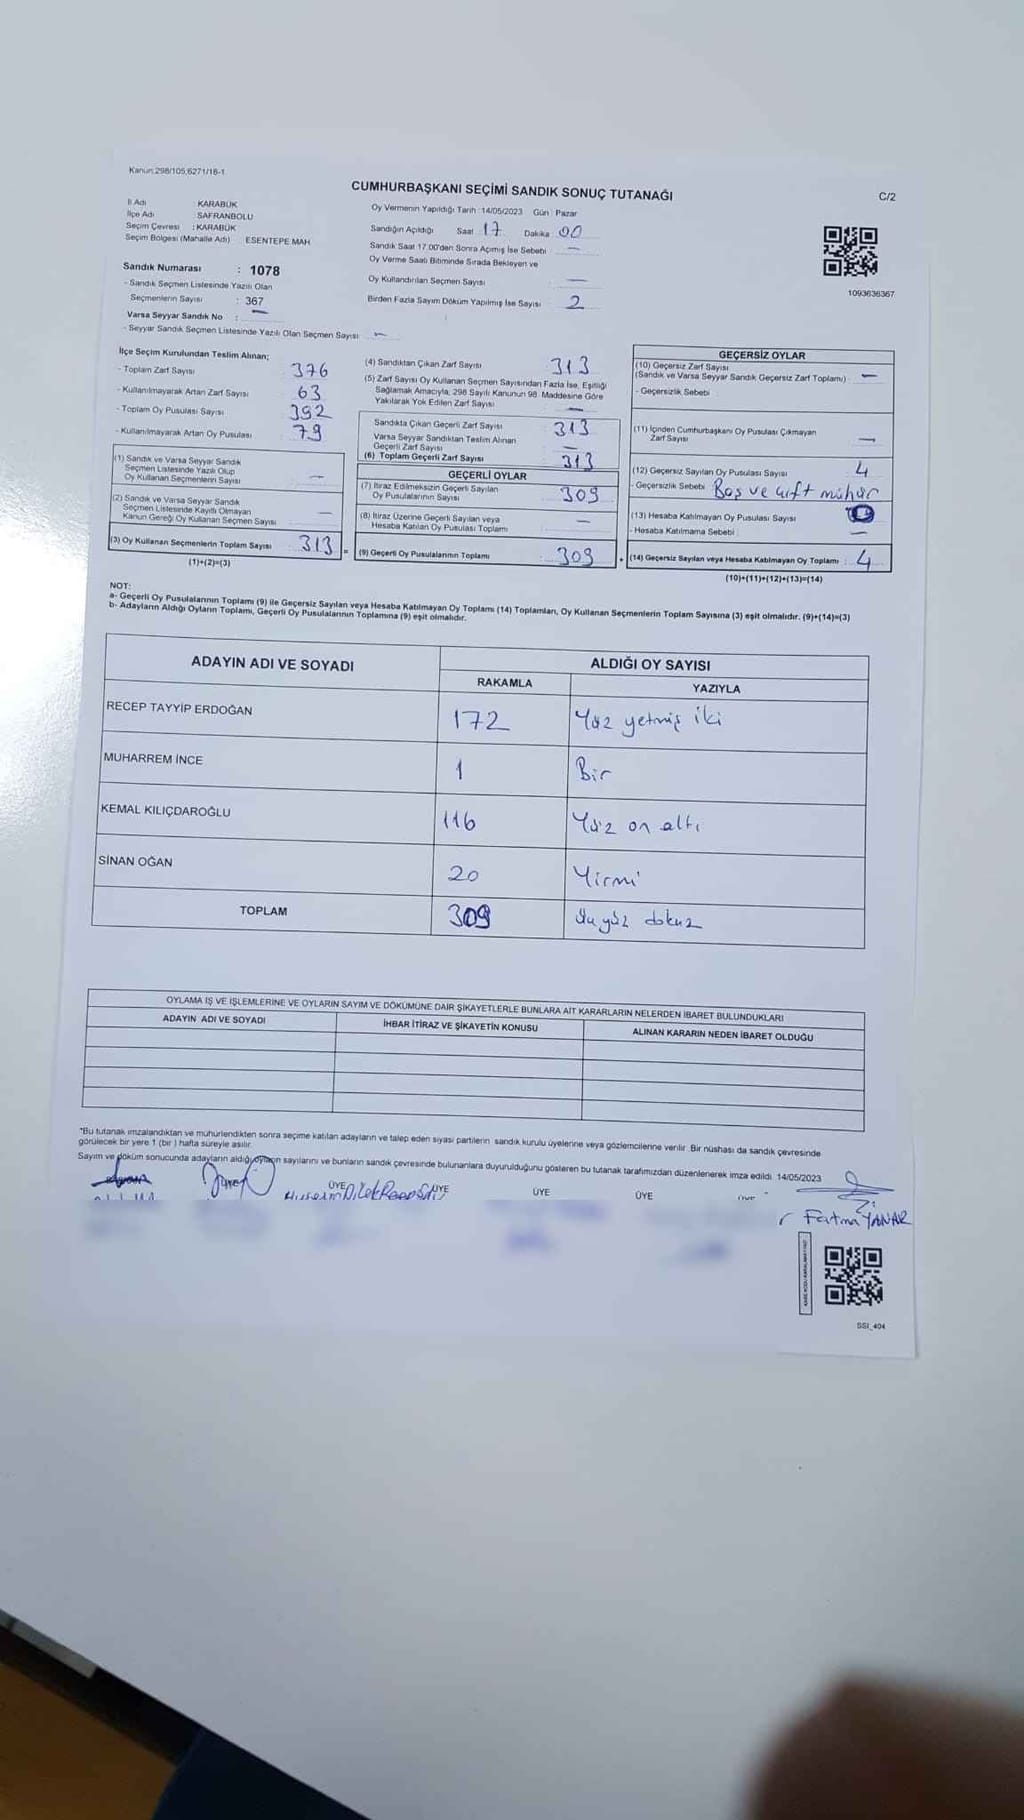 Kanun:298/105,6271/16-1
CUMHURBAŞKANI SEÇİMİ SANDIK SONUÇ TUTANAĞI
C/2
İl Adı KARABÜK
İlçe Adı SAFRANBOLU
Seçim Çevresi : KARABÜK
Seçim Bölgesi (Mahalle Adı) ESENTEPE MAH
Oy Vermenin Yapıldığı Tarih :14/05/2023 Gün : Pazar
Sandığın Açıldığı Saat 17 Dakika 00
Sandık Saat 17.00'den Sonra Açılmış İse Sebebi —
Oy Verme Saati Bitiminde Sırada Bekleyen ve
Oy Kullandırılan Seçmen Sayısı : —
Birden Fazla Sayım Döküm Yapılmış İse Sayısı 2
1093636367
Sandık Numarası : 1078
- Sandık Seçmen Listesinde Yazılı Olan
Seçmenlerin Sayısı : 367
Varsa Seyyar Sandık No : —
- Seyyar Sandık Seçmen Listesinde Yazılı Olan Seçmen Sayısı —
İlçe Seçim Kurulundan Teslim Alınan;
- Toplam Zarf Sayısı 376
- Kullanılmayarak Artan Zarf Sayısı 63
- Toplam Oy Pusulası Sayısı 392
- Kullanılmayarak Artan Oy Pusulası 79
(1) Sandık ve Varsa Seyyar Sandık
Seçmen Listesinde Yazılı Olup
Oy Kullanan Seçmenlerin Sayısı —
(2) Sandık ve Varsa Seyyar Sandık
Seçmen Listesinde Kayıtlı Olmayan
Kanun Gereği Oy Kullanan Seçmen Sayısı —
(3) Oy Kullanan Seçmenlerin Toplam Sayısı 313 =
(1)+(2)=(3)
(4) Sandıktan Çıkan Zarf Sayısı 313
(5) Zarf Sayısı Oy Kullanan Seçmen Sayısından Fazla İse, Eşitliği
Sağlamak Amacıyla, 298 Sayılı Kanunun 98. Maddesine Göre
Yakılarak Yok Edilen Zarf Sayısı —
Sandıkta Çıkan Geçerli Zarf Sayısı 313
Varsa Seyyar Sandıktan Teslim Alınan
Geçerli Zarf Sayısı —
(6) Toplam Geçerli Zarf Sayısı 313
GEÇERLİ OYLAR
(7) İtiraz Edilmeksizin Geçerli Sayılan
Oy Pusulalarının Sayısı 309
(8) İtiraz Üzerine Geçerli Sayılan veya
Hesaba Katılan Oy Pusulası Toplamı —
(9) Geçerli Oy Pusulalarının Toplamı 309 +
GEÇERSİZ OYLAR
(10) Geçersiz Zarf Sayısı
(Sandık ve Varsa Seyyar Sandık Geçersiz Zarf Toplamı) —
- Geçersizlik Sebebi :
(11) İçinden Cumhurbaşkanı Oy Pusulası Çıkmayan
Zarf Sayısı —
(12) Geçersiz Sayılan Oy Pusulası Sayısı 4
- Geçersizlik Sebebi Boş ve çift mühür
(13) Hesaba Katılmayan Oy Pusulası Sayısı 0
- Hesaba Katılmama Sebebi : —
(14) Geçersiz Sayılan veya Hesaba Katılmayan Oy Toplamı : 4
(10)+(11)+(12)+(13)=(14)
NOT:
a- Geçerli Oy Pusulalarının Toplamı (9) ile Geçersiz Sayılan veya Hesaba Katılmayan Oy Toplamı (14) Toplamları, Oy Kullanan Seçmenlerin Toplam Sayısına (3) eşit olmalıdır. (9)+(14)=(3)
b- Adayların Aldığı Oyların Toplamı, Geçerli Oy Pusulalarının Toplamına (9) eşit olmalıdır.
ADAYIN ADI VE SOYADI ALDIĞI OY SAYISI
RAKAMLA YAZIYLA
RECEP TAYYİP ERDOĞAN 172 Yüz yetmiş iki
MUHARREM İNCE 1 Bir
KEMAL KILIÇDAROĞLU 116 Yüz on altı
SİNAN OĞAN 20 Yirmi
TOPLAM 309 Üç yüz dokuz
OYLAMA İŞ VE İŞLEMLERİNE VE OYLARIN SAYIM VE DÖKÜMÜNE DAİR ŞİKAYETLERLE BUNLARA AİT KARARLARIN NELERDEN İBARET BULUNDUKLARI
ADAYIN ADI VE SOYADI İHBAR İTİRAZ VE ŞİKAYETİN KONUSU ALINAN KARARIN NEDEN İBARET OLDUĞU
*Bu tutanak imzalandıktan ve mühürlendikten sonra seçime katılan adayların ve talep eden siyasi partilerin sandık kurulu üyelerine veya gözlemcilerine verilir. Bir nüshası da sandık çevresinde
görülecek bir yere 1 (bir ) hafta süreyle asılır.
Sayım ve döküm sonucunda adayların aldığı oyların sayılarını ve bunların sandık çevresinde bulunanlara duyurulduğunu gösteren bu tutanak tarafımızdan düzenlenerek imza edildi. 14/05/2023
ÜYE ÜYE ÜYE ÜYE
Fatma YANAR
SSI_404